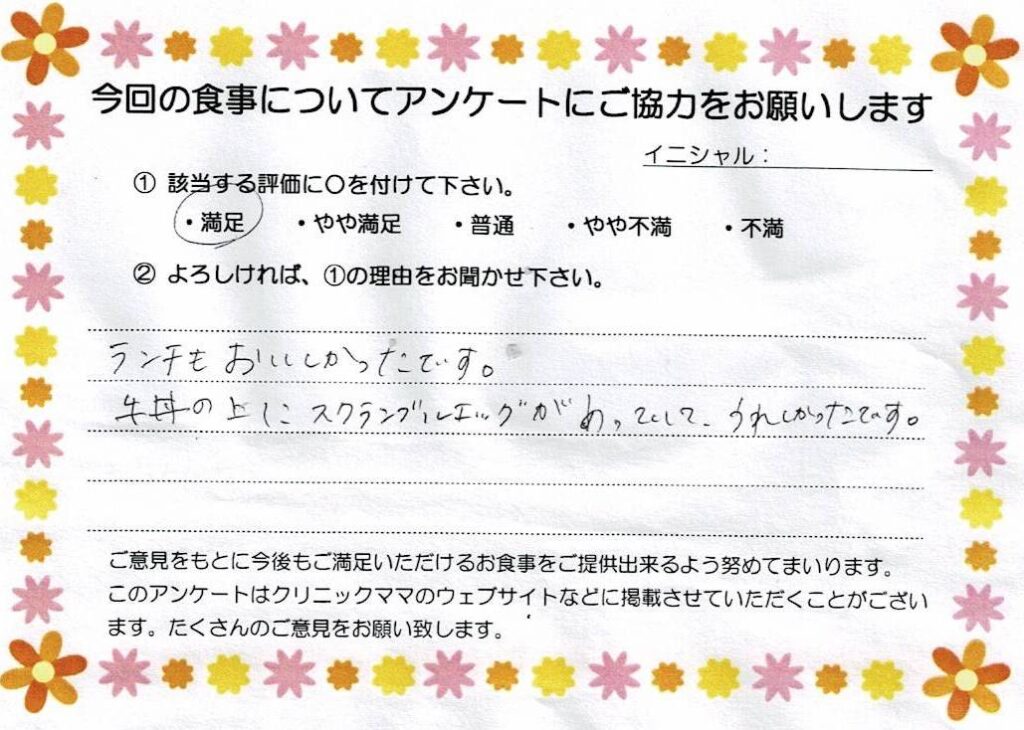 今回の食事についてアンケートにご協力をお願いします
イニシャル：
① 該当する評価に〇を付けて下さい。
・満足 ・やや満足 ・普通 ・やや不満 ・不満
② よろしければ、①の理由をお聞かせ下さい。
ランチも おいしかったです。
牛丼の上に スクランブルエッグが のっていて、うれしかったです。
ご意見をもとに今後もご満足いただけるお食事をご提供出来るよう努めてまいります。
このアンケートはクリニックママのウェブサイトなどに掲載させていただくことがござい
ます。たくさんのご意見をお願い致します。